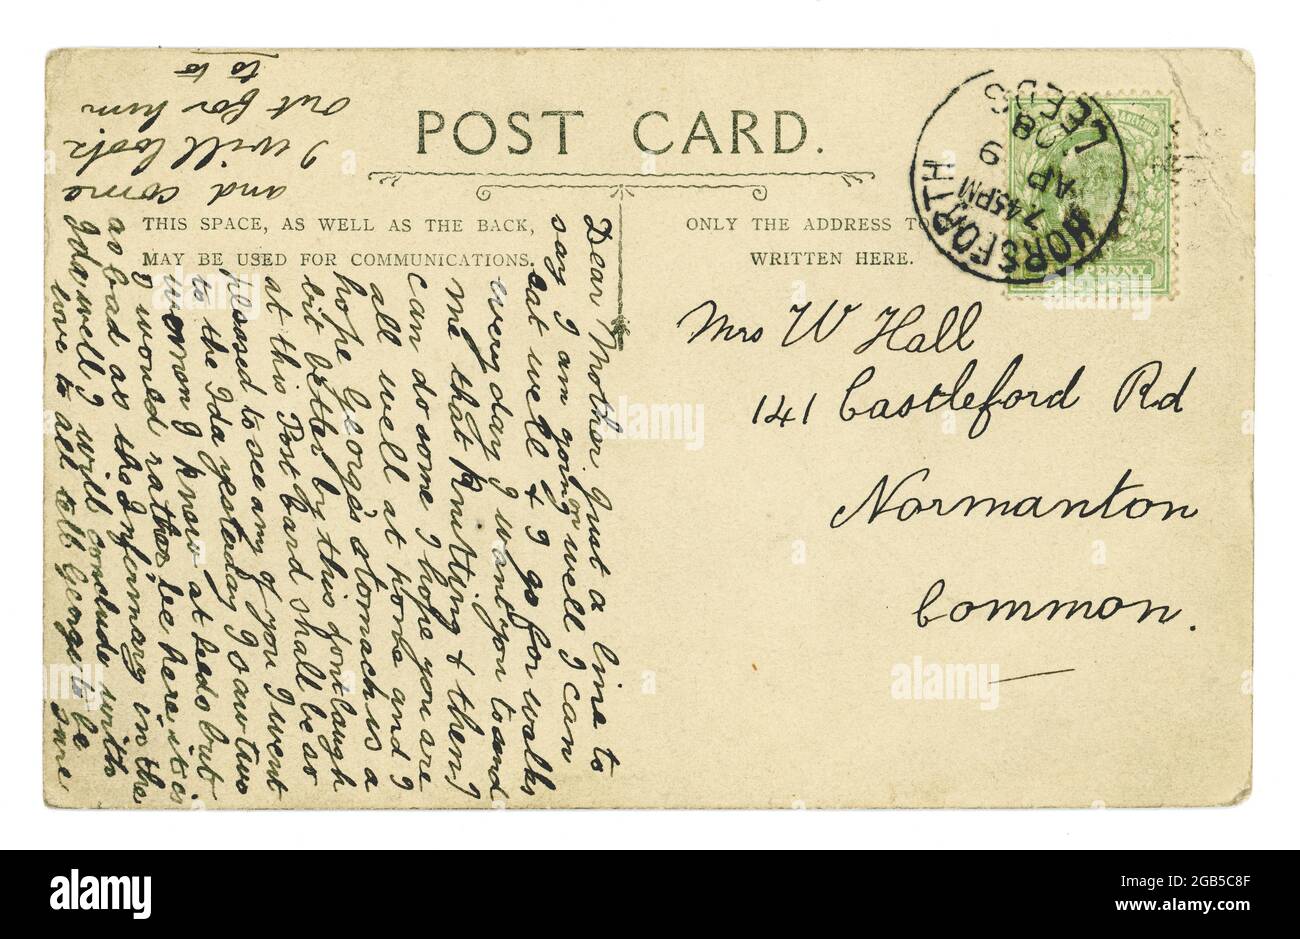 POST CARD.
THIS SPACE, AS WELL AS THE BACK,
MAY BE USED FOR COMMUNICATIONS.
ONLY THE ADDRESS TO
WRITTEN HERE.
HORSFORTH
7.45PM
AP 9
08
LEEDS
PENNY
Mrs W Hall
141 Castleford Rd
Normanton
Common.
Dear Mother Just a line to
say I am going on well I can
eat well & I go for walks
every day I want you to send
me that knitting & then I
can do some I hope you are
all well at home and I
hope George's stomach is a
bit better by this dont laugh
at this Post Card shall be so
pleased to see any of you I went
to the Ida yesterday I saw two
women I know at Leeds but
I would rather be here it is
as bad as the Infirmary in the
Ida, well I will conclude with
love to all tell George to be
sure
and come
I will look
out for him
to to
alamy
Image ID: 2GB5C8F
www.alamy.com